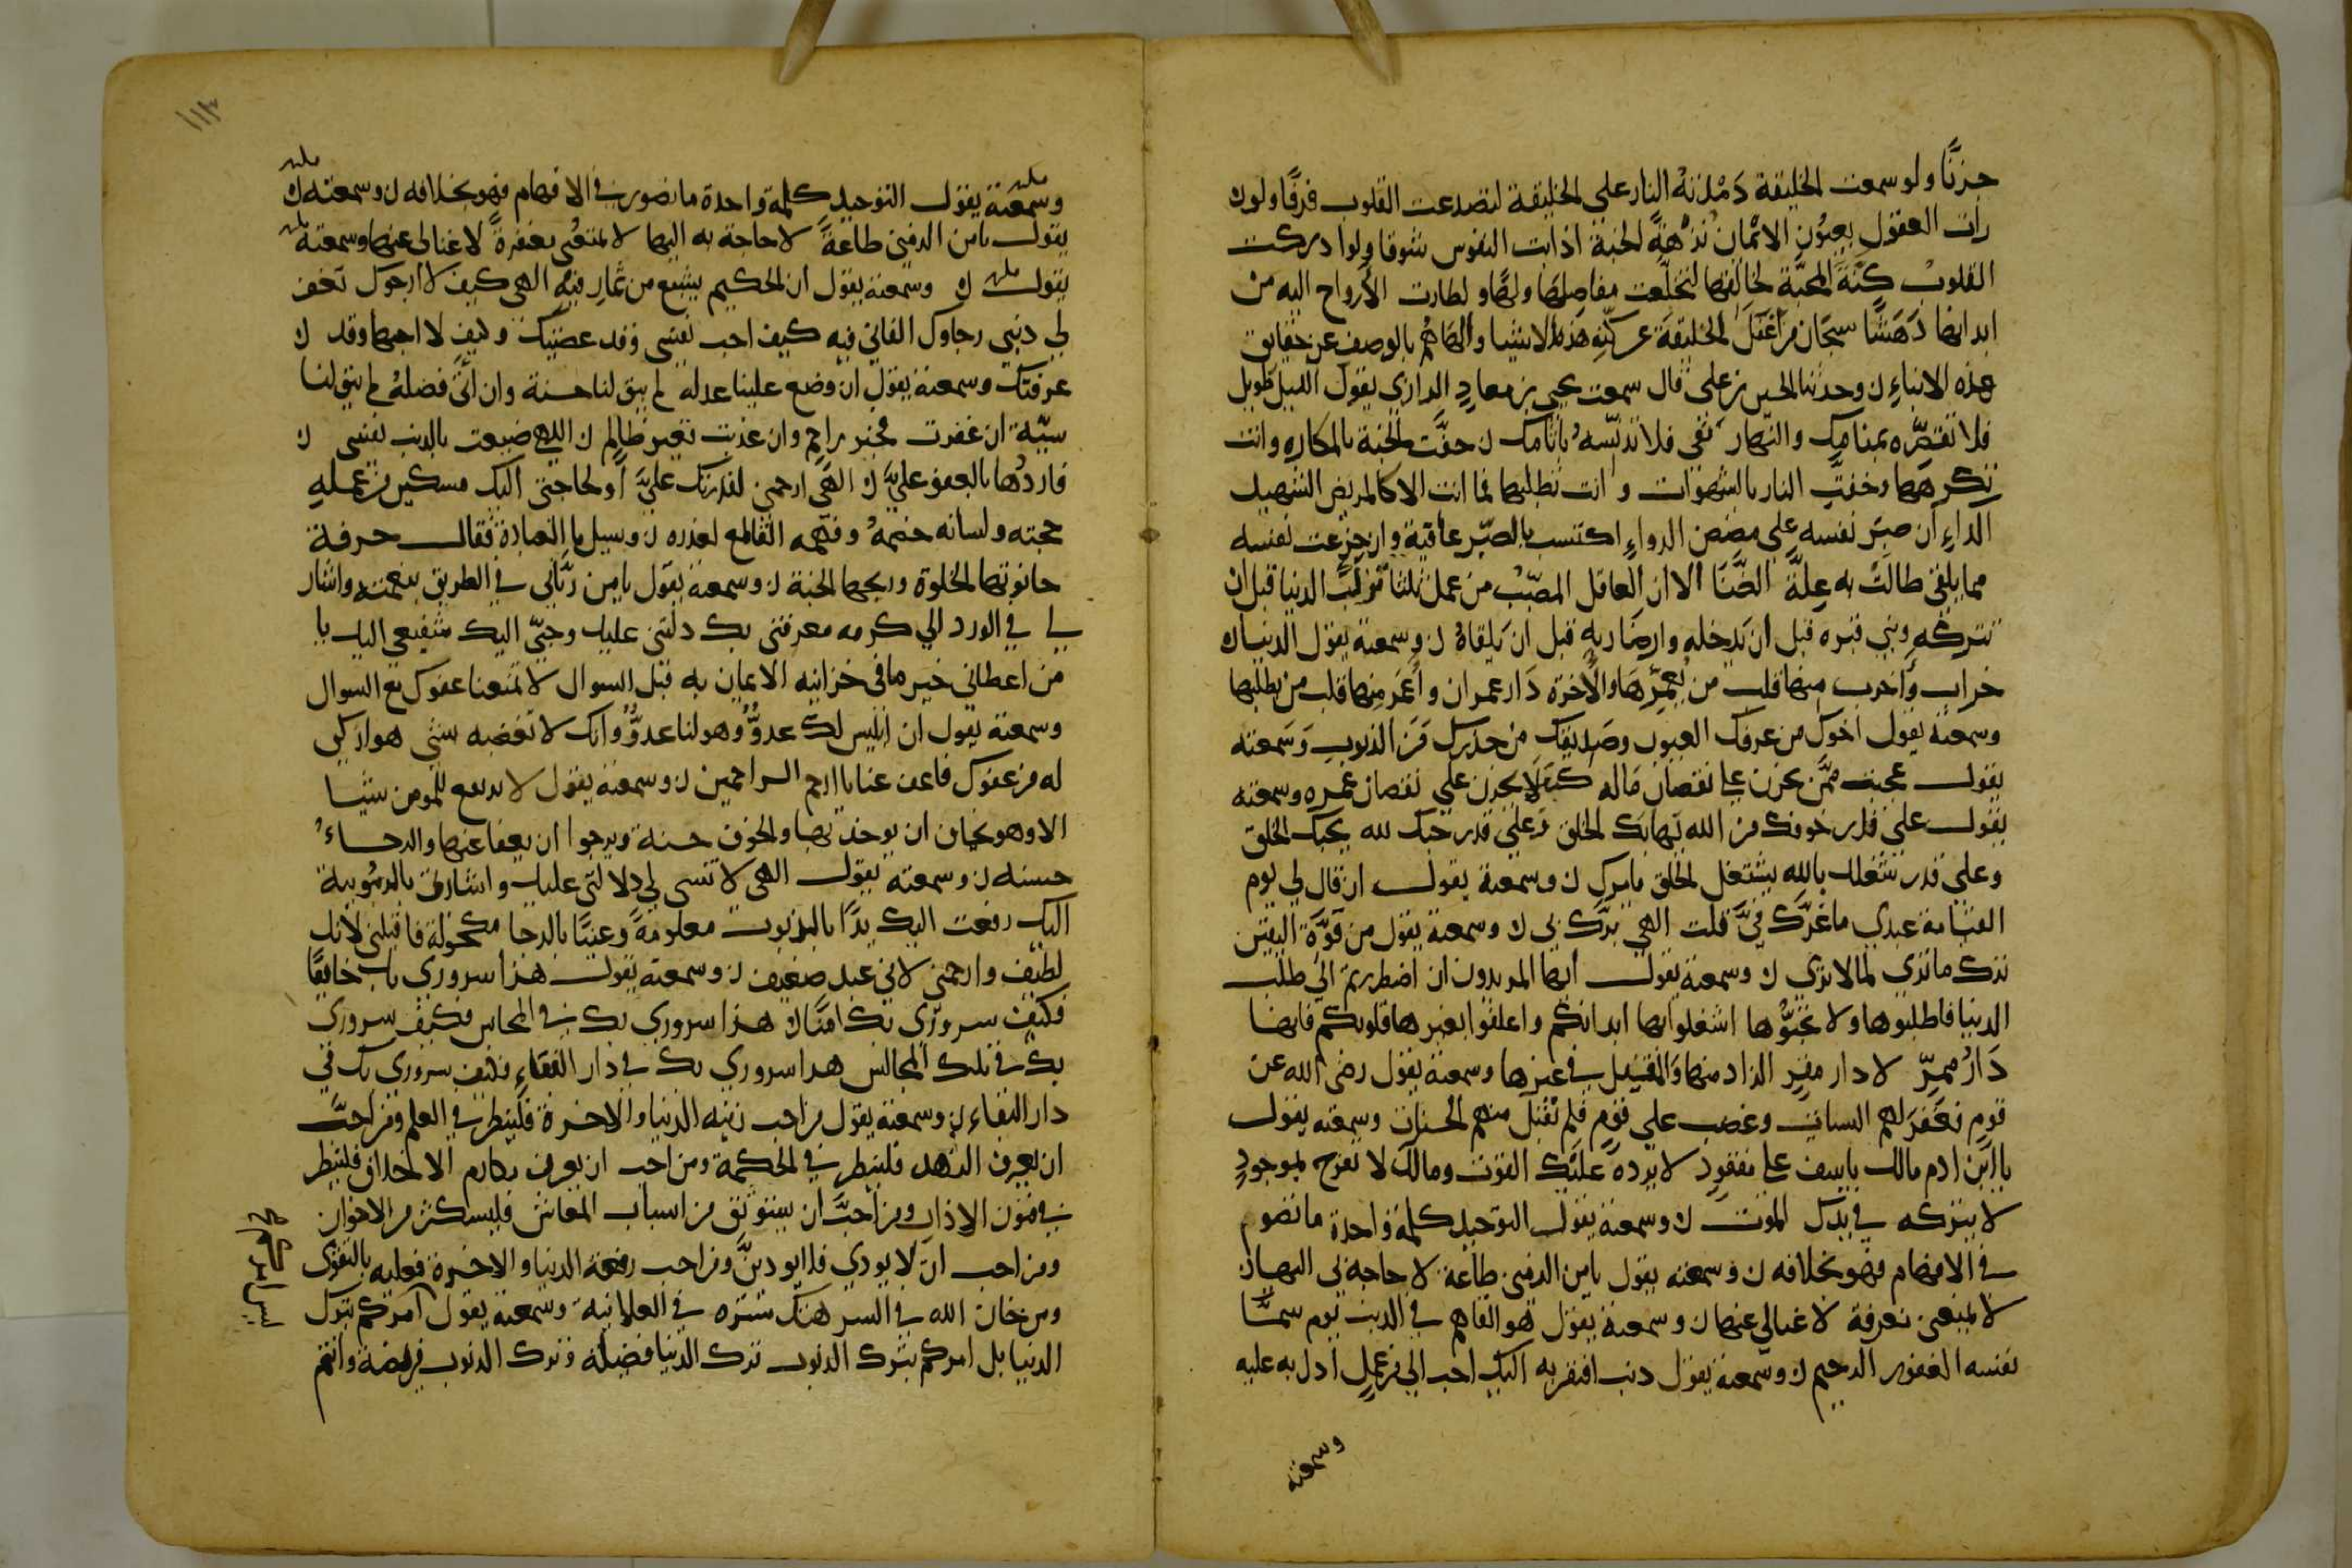 حزنًا ولو سمعت الخليقة دمدمة النار على الخليقة لتصدعت القلوب فرقًا ولو ان
رات العقول بعيون الايمان نزهة الجنة لذابت النفوس شوقا ولو ادركت
القلوب كنه المحبة لخالقها لتخلعت مفاصلها ولها ولطارت الأرواح اليه من
ابدانها دهشًا سبحان من اغفل الخليقة عن كنه هذه الاشيا والهاهم بالوصف عن حقايق
هذه الانباء ن وحدثنا الحسن بن علي قال سمعت يحيى بن معاذ الرازي يقول الليل طويل
فلا تقصره بمنامك والنهار نقي فلا تدنسه باثامك ن حفت الجنة بالمكاره وانت
تكرهها وحفت النار بالشهوات وانت تطلبها فما انت الا كالمريض الشديد
الداء ان صبر نفسه على مضض الدواء اكتسب بالصبر عافية وان جزعت نفسه
مما يلقى طالت به علة الضنا الا ان العاقل المصيب من عمل ثلثا ترك الدنيا قبل ان
تتركه وبنى قبره قبل ان يدخله وارضا ربه قبل ان يلقاه ن وسمعته يقول الدنيا دار
خراب واخرب منها قلب من يعمرها والاخرة دار عمران واعمر منها قلب من يطلبها
وسمعته يقول اخوك من عرفك العيوب وصديقك من حذرك من الذنوب وسمعته
يقول عجبت ممن يحزن على نقصان ماله كيف لا يحزن على نقصان عمره وسمعته
يقول على قدر خوفك من الله يهابك الخلق وعلى قدر حبك لله يحبك الخلق
وعلى قدر شغلك بالله يشتغل الخلق بامرك ن وسمعته يقول ان قال لي يوم
القيامة عبدي ما غرك بي قلت الهي برك بي ن وسمعته يقول من قوة اليقين
ترك ما ترى لما لا ترى ن وسمعته يقول أيها المريدون ان اضطررتم الى طلب
الدنيا فاطلبوها ولا تحبوها اشغلوا بها ابدانكم واعلقوا بغيرها قلوبكم فانها
دار ممر لا دار مقر الزاد منها والمقيل في غيرها وسمعته يقول رضي الله عن
قوم فغفر لهم السيات وغضب على قوم فلم تقبل منهم الحسنات وسمعته يقول
يا ابن ادم مالك ياسف على مفقود لا يرده عليك الفوت ومالك لا تفرح بموجود
لا يتركه في يدك الموت ن وسمعته يقول التوحيد كلمة واحدة ما تصور
في الافهام فهو بخلافه ن وسمعته يقول يامن الدفي طاعة لا حاجة لي اليها
لا لمنعي معرفة لا غنا لي عنها ن وسمعته يقول هو القاهم في الذنب يوم سما
نفسه الغفور الرحيم ن وسمعته يقول ذنب افتقر به اليك احب الي من عمل ادل به عليه
وسمعته
١١٣
وسمعته يقول التوحيد كلمة واحدة ما تصور في الافهام فهو بخلافه ن وسمعته ن
يقول يامن الدفي طاعة لا حاجة به اليها لا لمنعي مغفرة لا غنا لي عنها وسمعته
يقول ن وسمعته يقول ان الحكيم يشبع من ثمار فيه الهي كيف لا ارجوك تغفر
لي ذنبي رجاوك الفاني فيه كيف احب نفسي وقد عصتك وكيف لا احبها وقد ن
عرفتك وسمعته يقول ان وضع علينا عدله لم يبق لنا حسنة وان اتى فضله لم يبق لنا
سيئة ان غفرت فخير راحم وان عذبت فغير ظالم ن الهي ضيعت بالذنب نفسي ن
فارددها بالعفو علي ن الهي ارحمني لقدرتك علي او لحاجتي اليك مسكين من عمله
حجته ولسانه خصمه وفهمه القاطع لعذره ن وسيل ما العبادة فقال حرفة
حانوتها الخلوة وربحها الجنة ن وسمعته يقول يامن رباني في الطريق بنعمته واشار
لي في الورد الى كرمه معرفتي بك دلتني عليك وحبي اليك شفيعي اليك يا
من اعطاني خير ما في خزاينه الايمان به قبل السوال لا تمنعنا عفوك مع السوال
وسمعته يقول ان ابليس لك عدو وهو لنا عدو وانك لا تغضبه بشي هو انكى
له من عفوك فاعف عنا يا ارحم الراحمين ن وسمعته يقول لا يدع المومن شيا
الا وهو يخاف ان يوخذ بها والخوف حسنة ويرجوا ان يعفا عنها والرجاء
حسنه ن وسمعته يقول الهي لا تنسى لي دلالتي عليك واشارتي بالربوبية
اليك رفعت اليك يدًا بالذنوب مغلولة وعينا بالرجا مكحولة فاقبلني لانك
لطيف وارحمني لاني عبد ضعيف ن وسمعته يقول هذا سروري بك خايفًا
فكيف سروري بك امنا ن هذا سروري بك في المجالس فكيف سروري
بك في تلك المجالس هذا سروري بك في دار الفناء فكيف سروري بك في
دار البقاء ن وسمعته يقول من احب زينه الدنيا والاخرة فلينظر في العلم ومن احب
ان يعرف الزهد فلينظر في الحكمة ومن احب ان يعرف مكارم الاخلاق فلينظر
في فنون الاداب ومن احب ان يستوثق من اسباب المعاش فليستكثر من الاخوان
ومن احب ان لا يوذى فلا يوذين ومن احب رفعة الدنيا والاخرة فعليه بالتقوى
ومن خان الله في السر هتك ستره في العلانية وسمعته يقول آمركم بترك
الدنيا بل امركم بترك الذنوب ترك الدنيا فضيلة وترك الذنوب فريضة وانتم